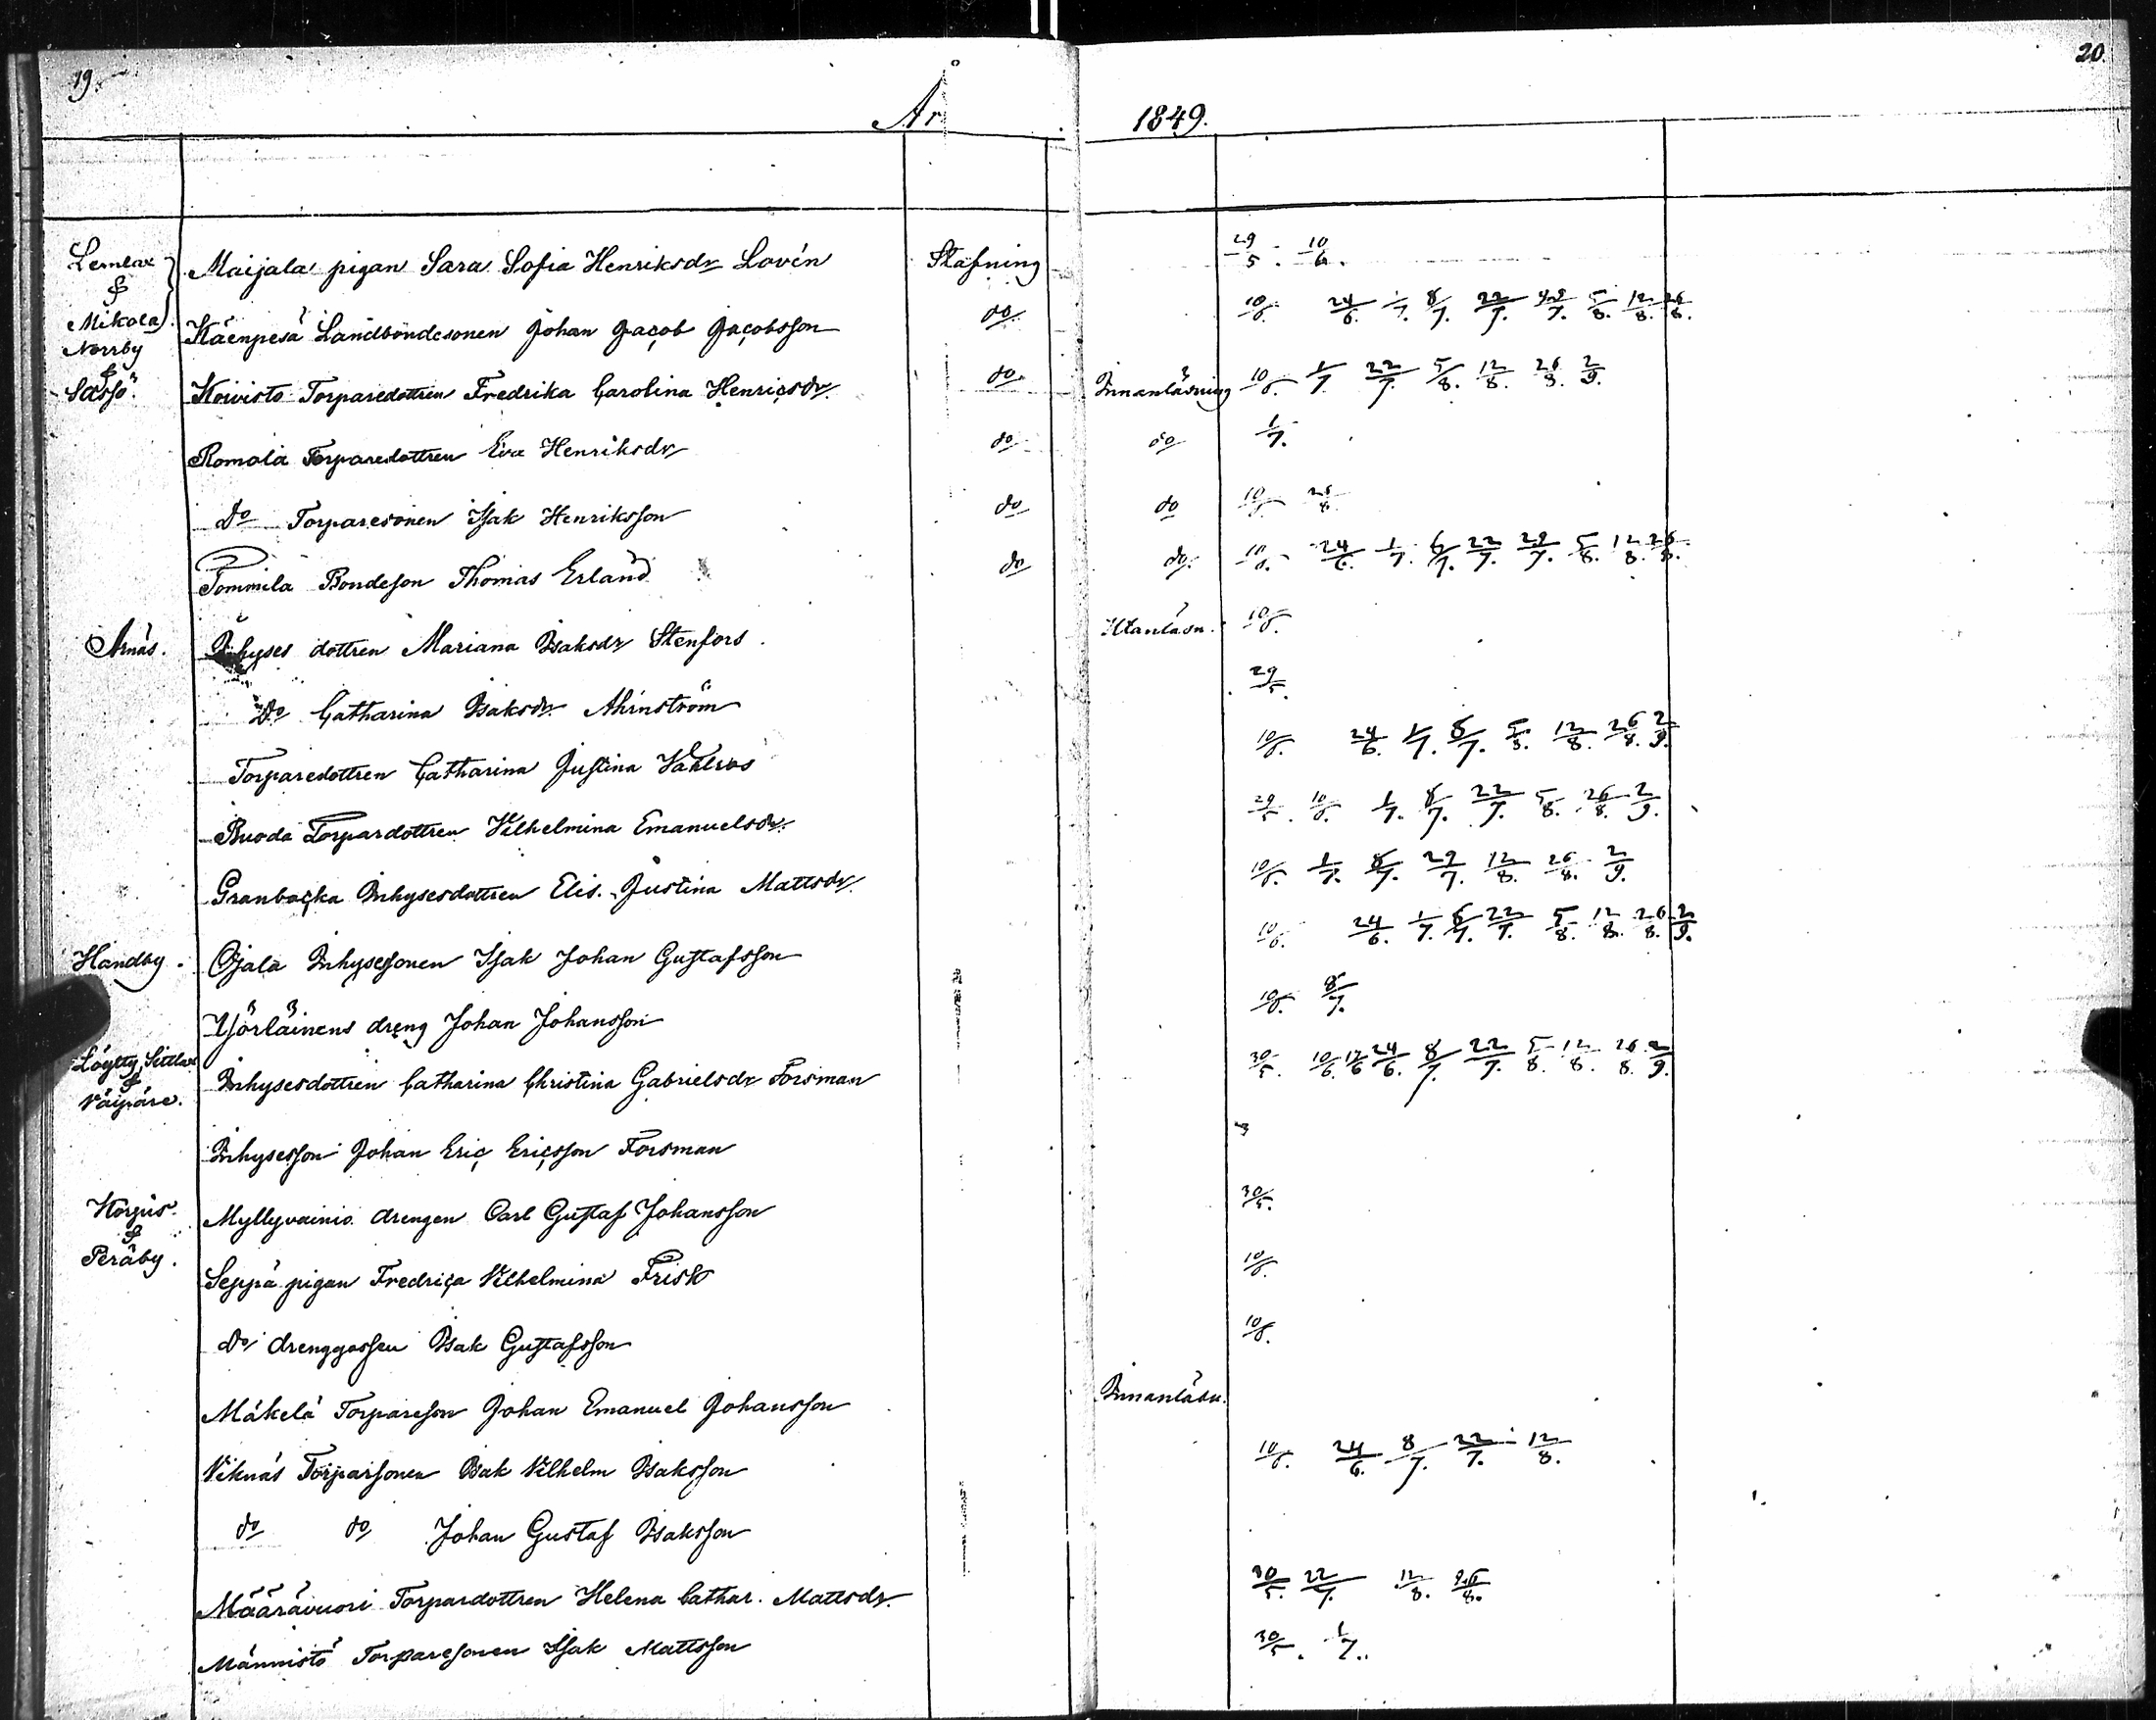 19.
20.
År 1849.
Lemlax & Mikola Maijala pigan Sara Sofia Henriksdr Lovén Stafning 29/5. 10/6.
Landbondesonen Johan Jacob Jacobsson do 10/6. 24/6. 1/7. 8/7. 22/7. 29/7. 5/8. 12/8. 26/8.
Norrby & Koivisto Torparedottren Fredrika Carolina Henricsdr. do Innanläsning 10/6. 1/7. 22/7. 5/8. 12/8. 26/8. 2/9.
Romola Torparedottren Eva Henriksdr do do 1/7.
do Torparesonen Isak Henriksson do do 10/6. 26/8.
Tommila Bondeson Thomas Erland do do. 10/6. 24/6. 1/7. 8/7. 22/7. 29/7. 5/8. 12/8. 26/8.
Arnäs. Inhyses dottren Mariana Isaksdr Stenfors. Utanläsn. 10/6.
do Catharina Isaksdr. 29/5.
Torparedottren Catharina Justina 10/6. 24/6. 1/7. 8/7. 5/8. 12/8. 26/8. 2/9.
Torpardottren Vilhelmina Emanuelsdr. 29/5. 10/6. 1/7. 8/7. 22/7. 5/8. 26/8. 2/9.
Granbacka Inhysesdottren Elis. Justina Mattsdr. 10/6. 1/7. 8/7. 12/8. 26/8. 2/9.
Handby. Ojala Inhysessonen Isak Johan Gustafsson 10/6. 24/6. 1/7. 8/7. 22/7. 5/8. 12/8. 26/8. 2/9.
dreng Johan Johansson 10/6. 8/7.
Löytty, Settlax & Inhysesdottren Catharina Christina Gabrielsdr Forsman 30/5. 10/6. 17/6. 24/6. 8/7. 22/7. 5/8. 12/8. 26/8. 2/9.
Inhysesson Johan Eric Ericsson Forsman
Korpis & Peräby. Myllyvainio drengen Carl Gustaf Johansson 30/5.
Seppä pigan Fredrica Vilhelmina Frisk 10/6.
do drenggossen Isak Gustafsson 10/6.
Mäkelä Torpareson Johan Emanuel Johansson Innanläsn.
Viknäs Torparsonen Isak Vilhelm Isaksson 10/6. 24/6. 8/7. 22/7. 12/8.
do do Johan Gustaf Isaksson
Määrävuori Torpardottren Helena Cathar. Mattsdr. 30/5. 22/7. 12/8. 26/8.
Männistö Torparesonen Isak Mattsson 30/5. 1/7.